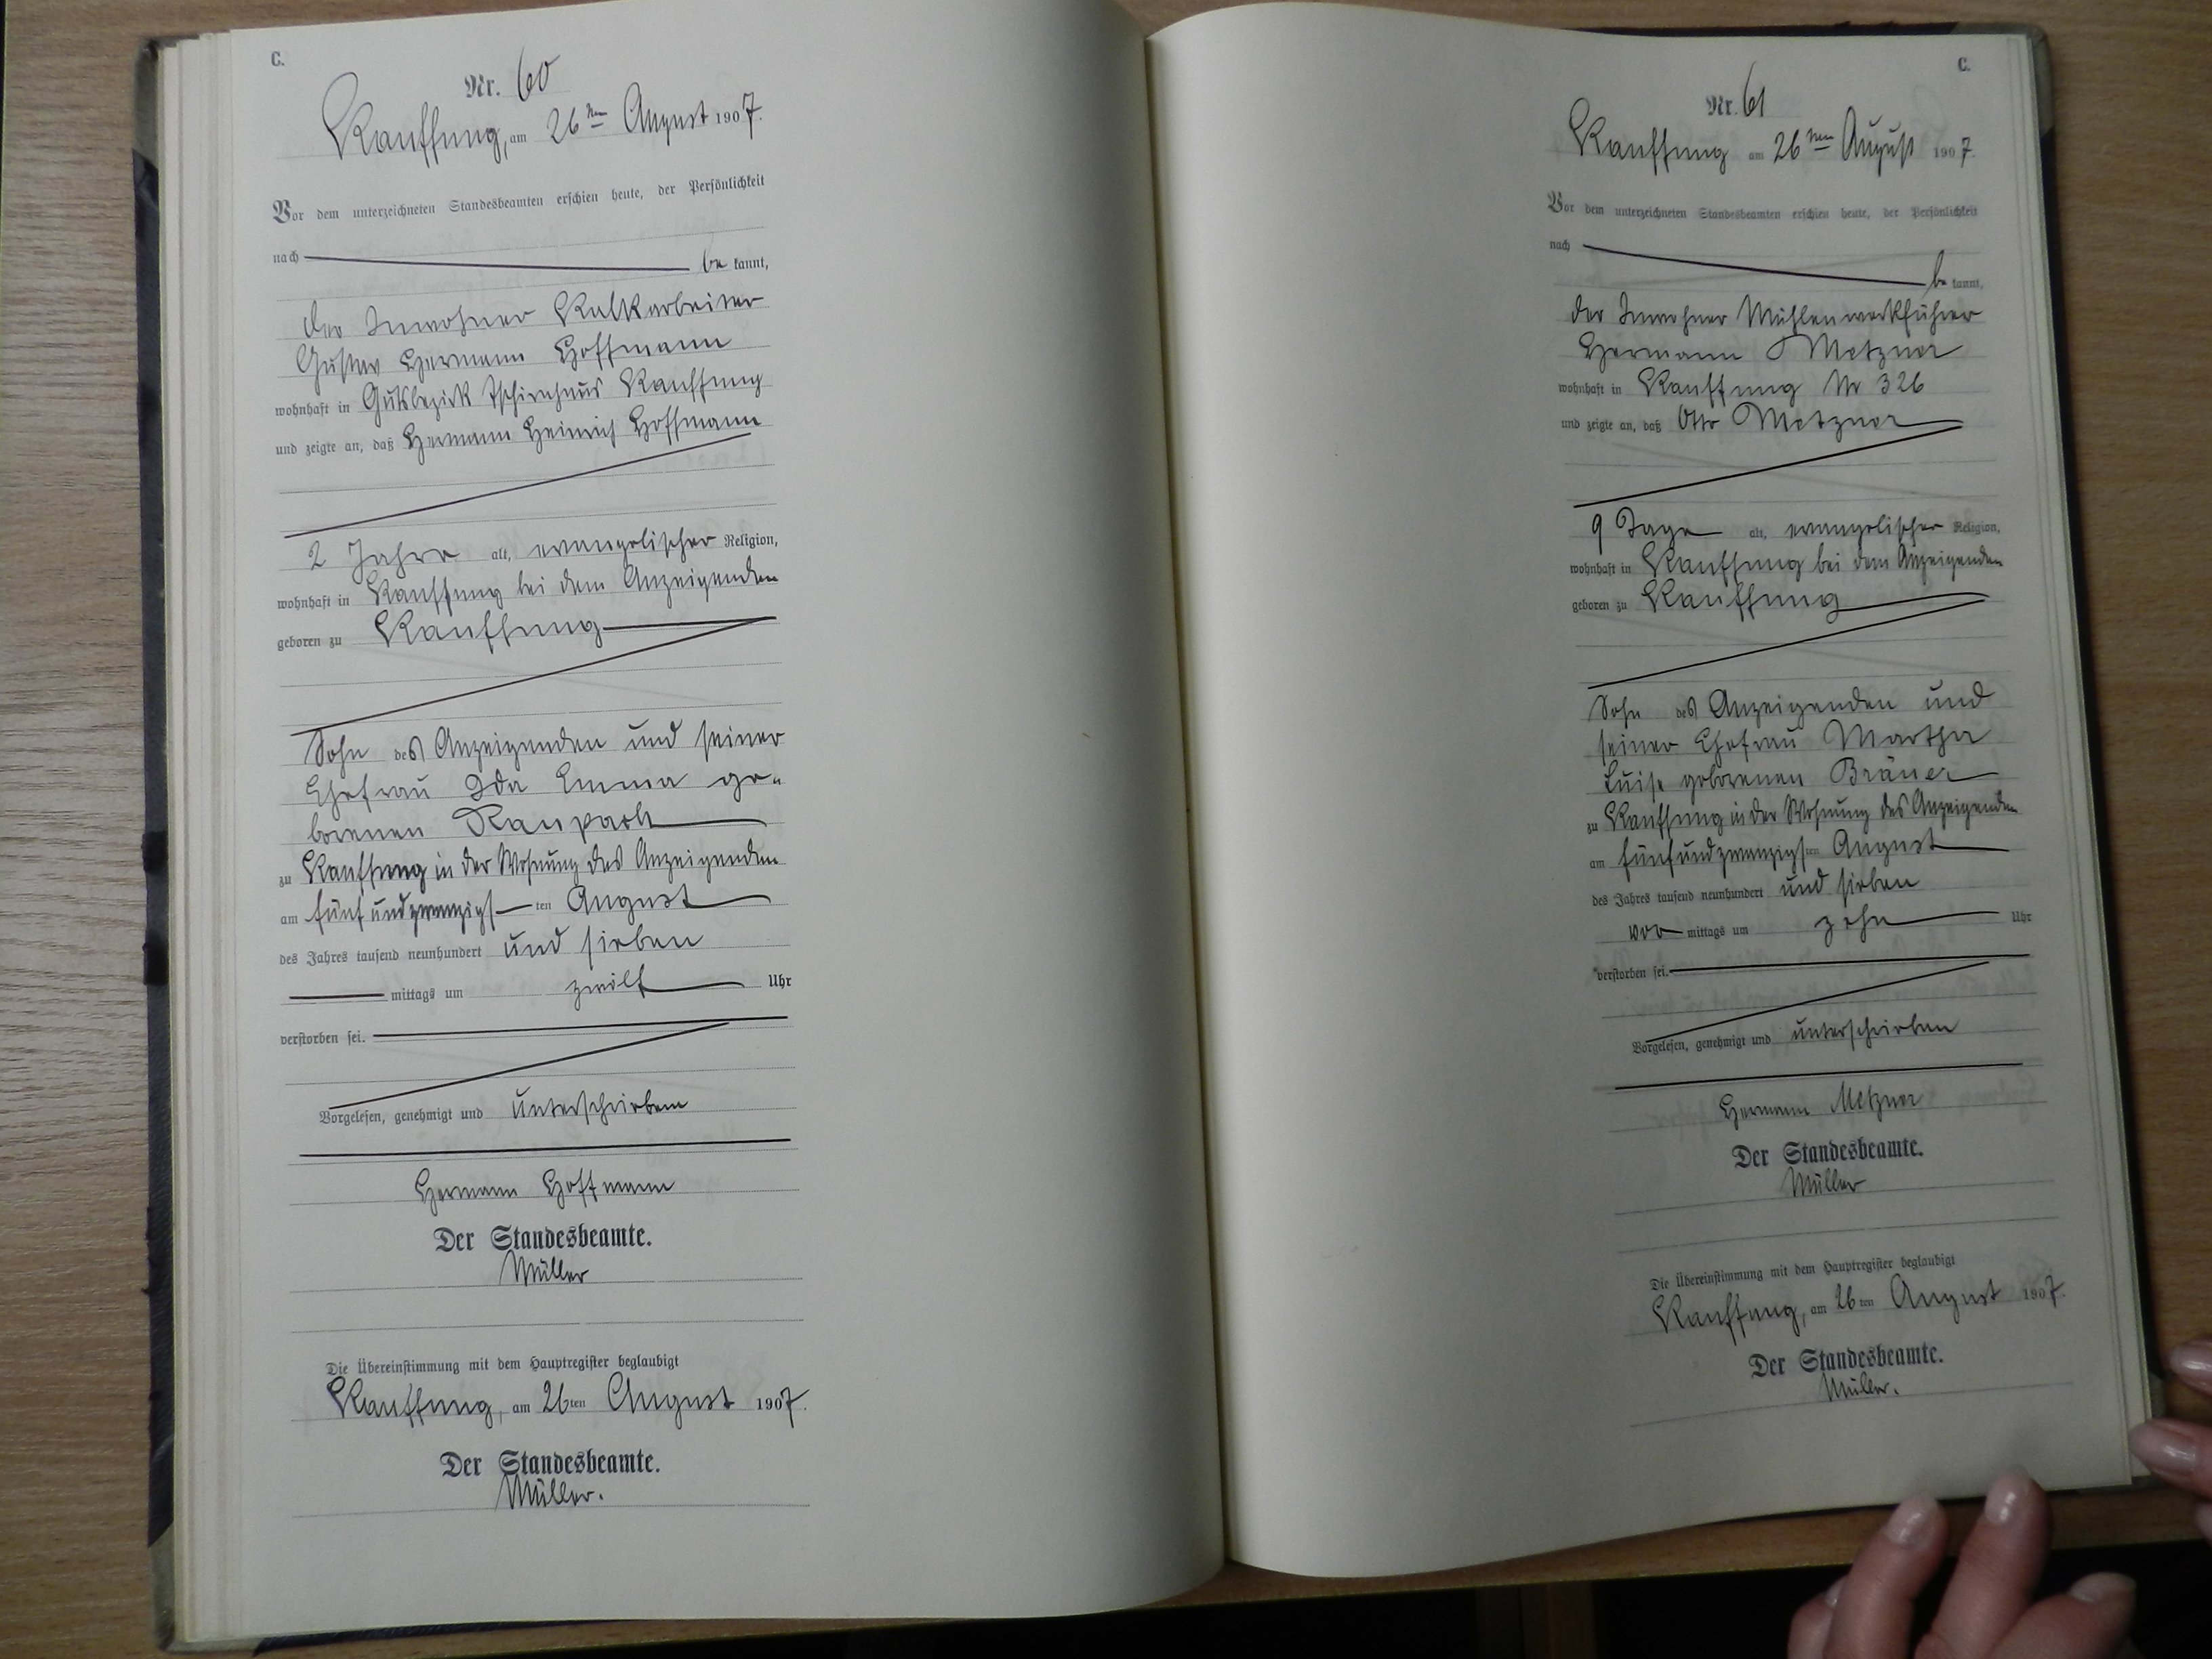 C.
Nr. 60
Kauffung, am 26ten August 1907.
Vor dem unterzeichneten Standesbeamten erschien heute, der Persönlichkeit
nach be kannt,
der Inwohner Kalkarbeiter
Gustav Hermann Hoffmann
wohnhaft in Gutsbezirk Tschirnhaus Kauffung
und zeigte an, daß Hermann Heinrich Hoffmann
2 Jahre alt, evangelischer Religion,
wohnhaft in Kauffung bei dem Anzeigenden
geboren zu Kauffung
Sohn des Anzeigenden und seiner
Ehefrau Ida Emma ge-
borenen Raupach
zu Kauffung in der Wohnung des Anzeigenden
am fünfundzwanzigsten August
des Jahres tausend neunhundert und sieben
mittags um zwölf Uhr
verstorben sei.
Vorgelesen, genehmigt und unterschrieben
Hermann Hoffmann
Der Standesbeamte.
Müller
Die Übereinstimmung mit dem Hauptregister beglaubigt
Kauffung, am 26ten August 1907.
Der Standesbeamte.
Müller.
C.
Nr. 61
Kauffung am 26ten August 1907.
Vor dem unterzeichneten Standesbeamten erschien heute, der Persönlichkeit
nach be kannt,
der Inwohner Mühlenwerkführer
Hermann Metzner
wohnhaft in Kauffung Nr 326
und zeigte an, daß Otto Metzner
9 Tage alt, evangelischer Religion,
wohnhaft in Kauffung bei dem Anzeigenden
geboren zu Kauffung
Sohn des Anzeigenden und
seiner Ehefrau Martha
Luise geborenen Bräuer
zu Kauffung in der Wohnung des Anzeigenden
am fünfundzwanzigsten August
des Jahres tausend neunhundert und sieben
vor mittags um zehn Uhr
verstorben sei.
Vorgelesen, genehmigt und unterschrieben
Hermann Metzner
Der Standesbeamte.
Müller
Die Übereinstimmung mit dem Hauptregister beglaubigt
Kauffung, am 26ten August 1907.
Der Standesbeamte.
Müller.